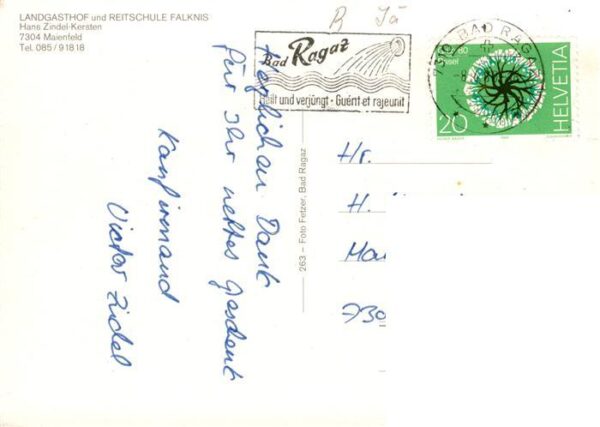 LANDGASTHOF und REITSCHULE FALKNIS
Hans Zindel-Kersten
7304 Maienfeld
Tel. 085/91818
R Jä
Bad Ragaz
heilt und verjüngt - Guérit et rajeunit
BAD RAGAZ
20
HELVETIA
Herzlichen Dank
für Ihr nettes Geschenk
Konfirmand
Victor Zindel
263 – Foto Fetzer, Bad Ragaz
Hr.
H.
730